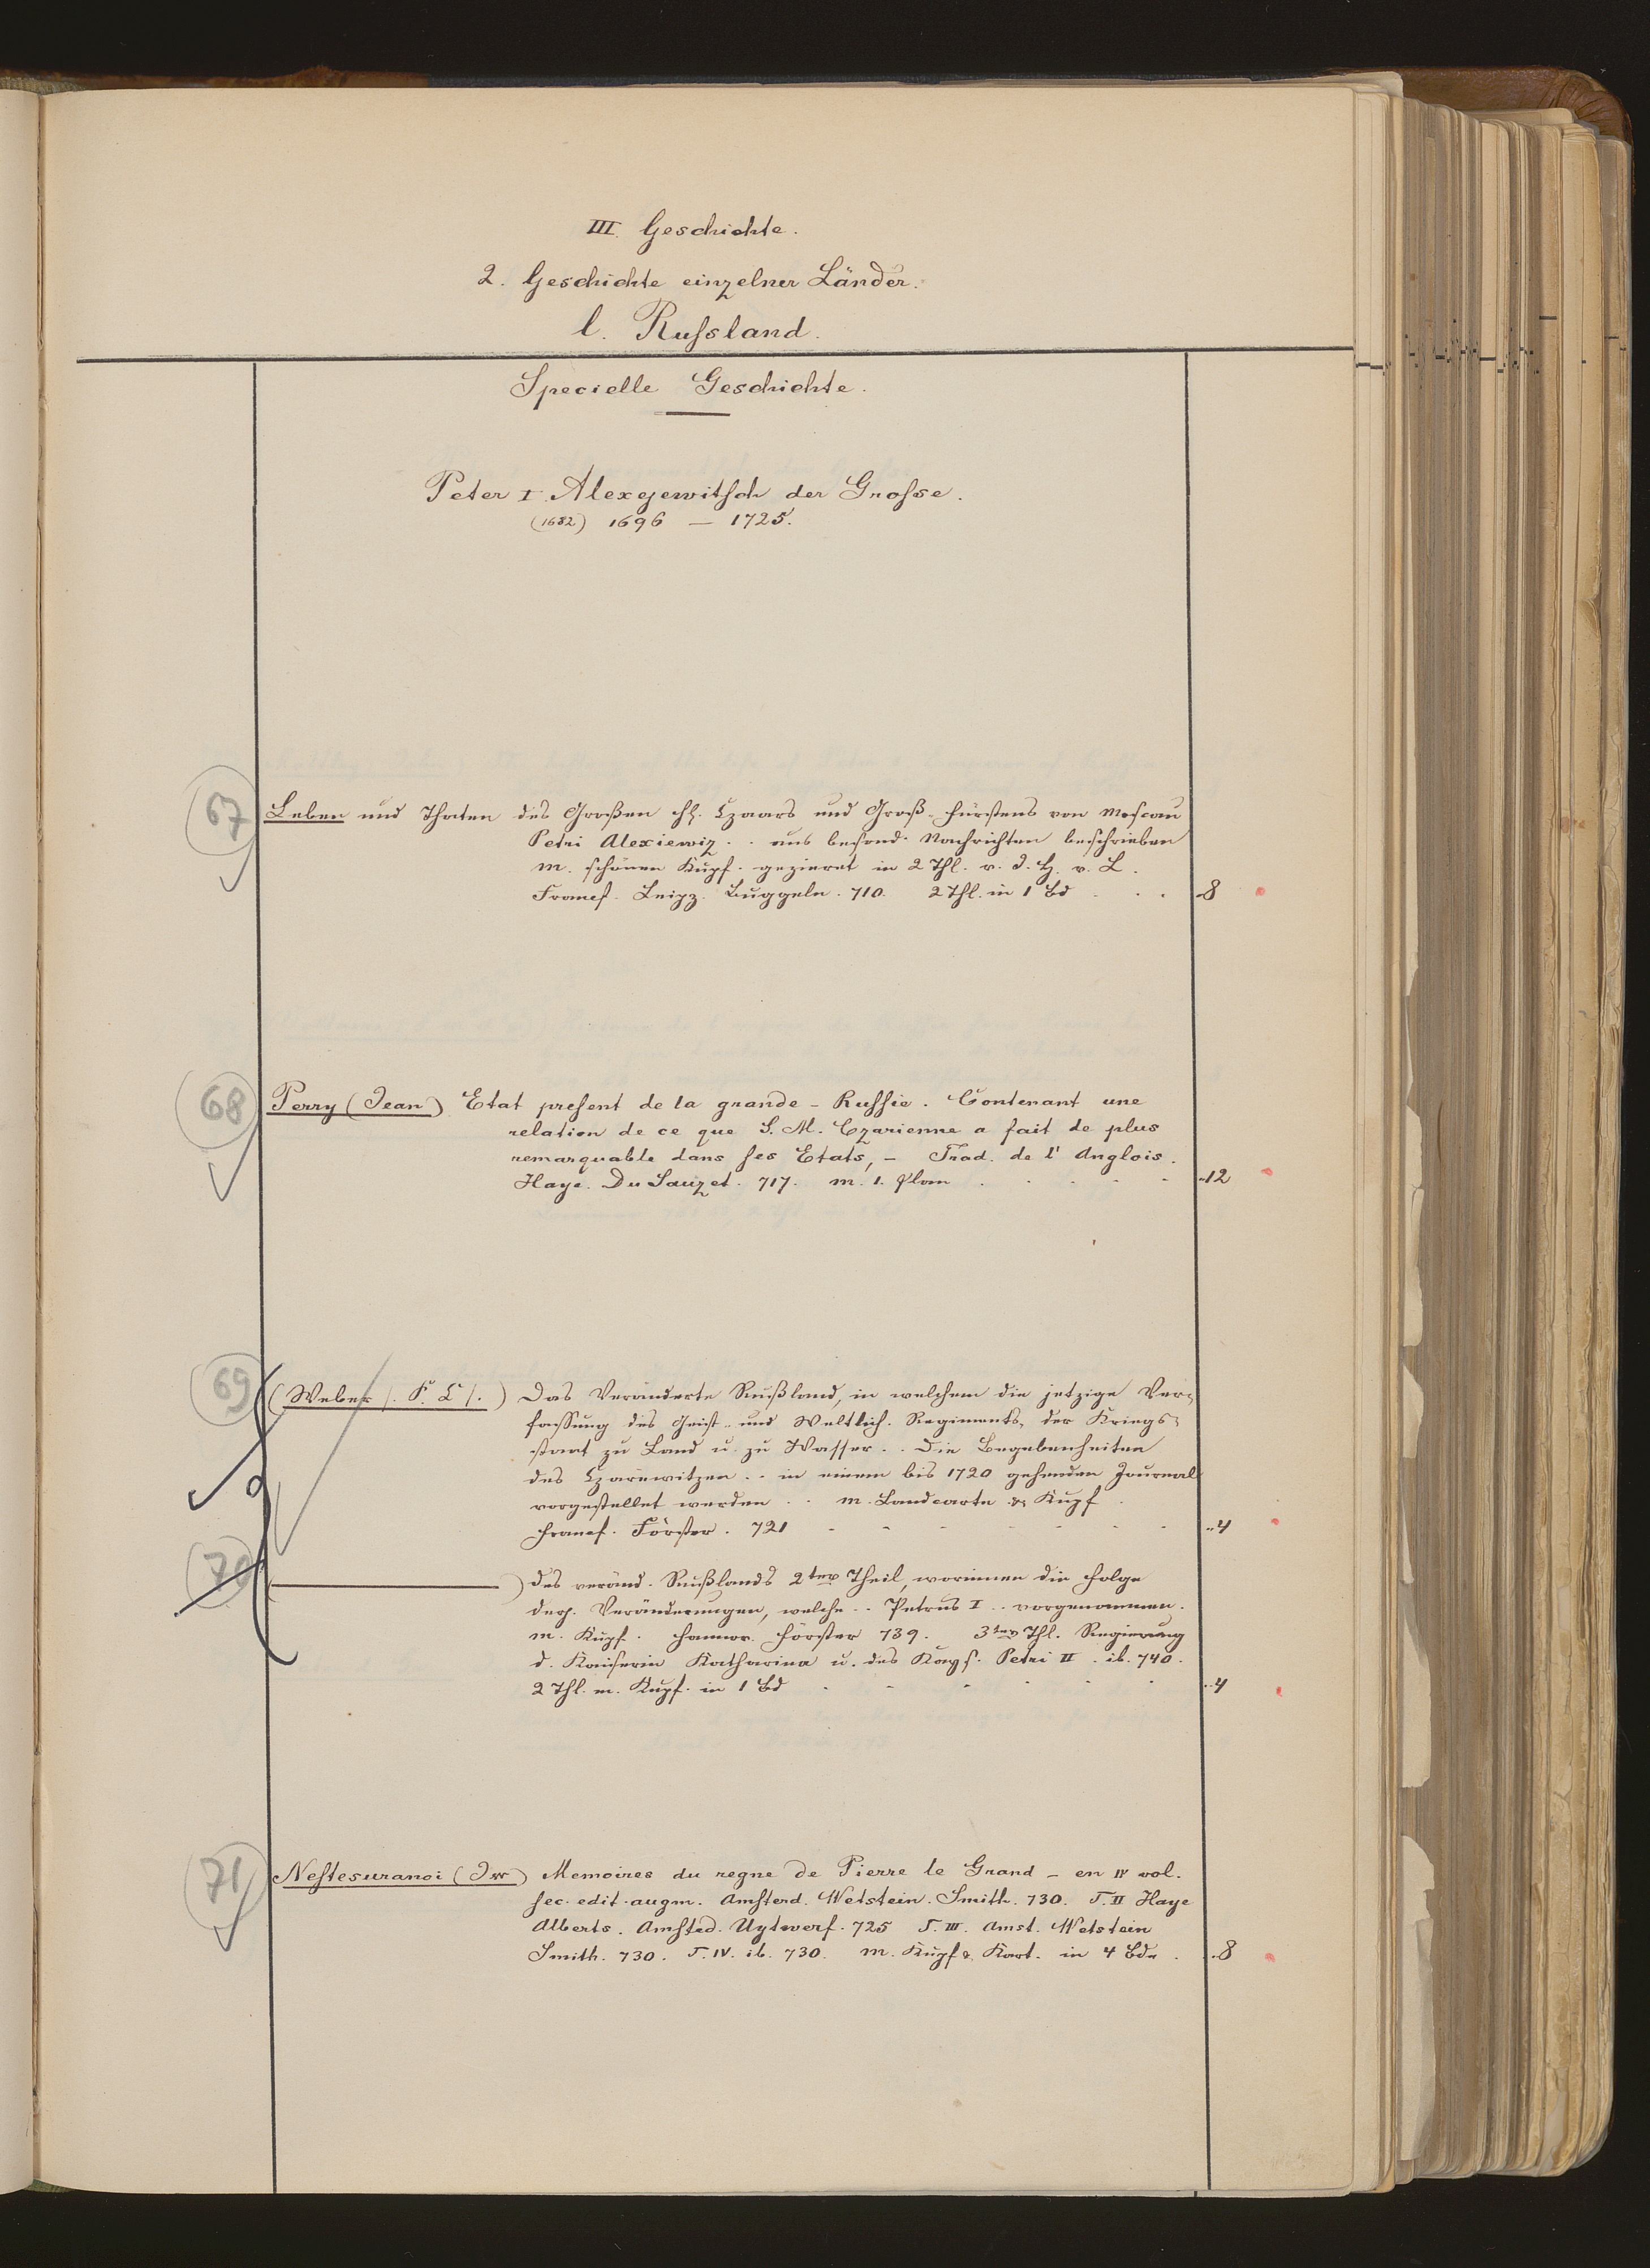 III. Geschichte.
2. Geschichte einzelner Länder.
l. Russland.
Specielle Geschichte.
Peter I. Alexejewitsch der Grosse.
(1682) 1696 — 1725.
67 Leben und Thaten des Großen Hl. Czaars und Groß-fürstens von Moscau
Petri Alexiewiz . . aus besond. Nachrichten beschrieben
m. schönen Kupf. gezieret in 2 Thl. v. J. H. v. L.
Francf. Leipz. Buggeln. 710. 2 Thl. in 1 Bd . . . 8
68 Perry (Jean) Etat present de la grande-Russie. Contenant une
relation de ce que S. M. Czarienne a fait de plus
remarquable dans ses Etats, – Trad. de l' Anglois.
Haye. Du Sauzet. 717. m. 1. Plan . . . . . 12
69 (Weber /. F. C /.) Das Veränderte Rußland, in welchem die jetzige Ver-
fassung des Geist- und Weltlich. Regiments, der Kriegs-
staat zu Land u. zu Wasser . . Die Begebenheiten
des Czarewitzen . . in einem bis 1720 gehenden Journal
vorgestellet werden . . m. Landcarte & Kupf.
Francf. Förster. 721 - - - - - - 4
70 ——— ) des veränd. Rußlands 2ter Theil, worinnen die Folge
derj. Veränderungen, welche . . Petrus I . . vorgenommen.
m. Kupf. Hannov. Förster 739. 3ter Thl. Regierung
d. Kaiserin Katharina u. des Kays. Petri II. ib. 740.
2 Thl. m. Kupf. in 1 Bd . . . . . . 4
71 Nestesuranoi (Iw) Memoires du regne de Pierre le Grand – en IV vol.
sec. edit. augm. Amsterd. Wetstein. Smith. 730. T. II Haye
Alberts. Amsted. Uytwerf. 725 T. III. Amst. Wetstein
Smith. 730. T. IV. ib. 730. m. Kupf & Kart. in 4 Bde . . 8